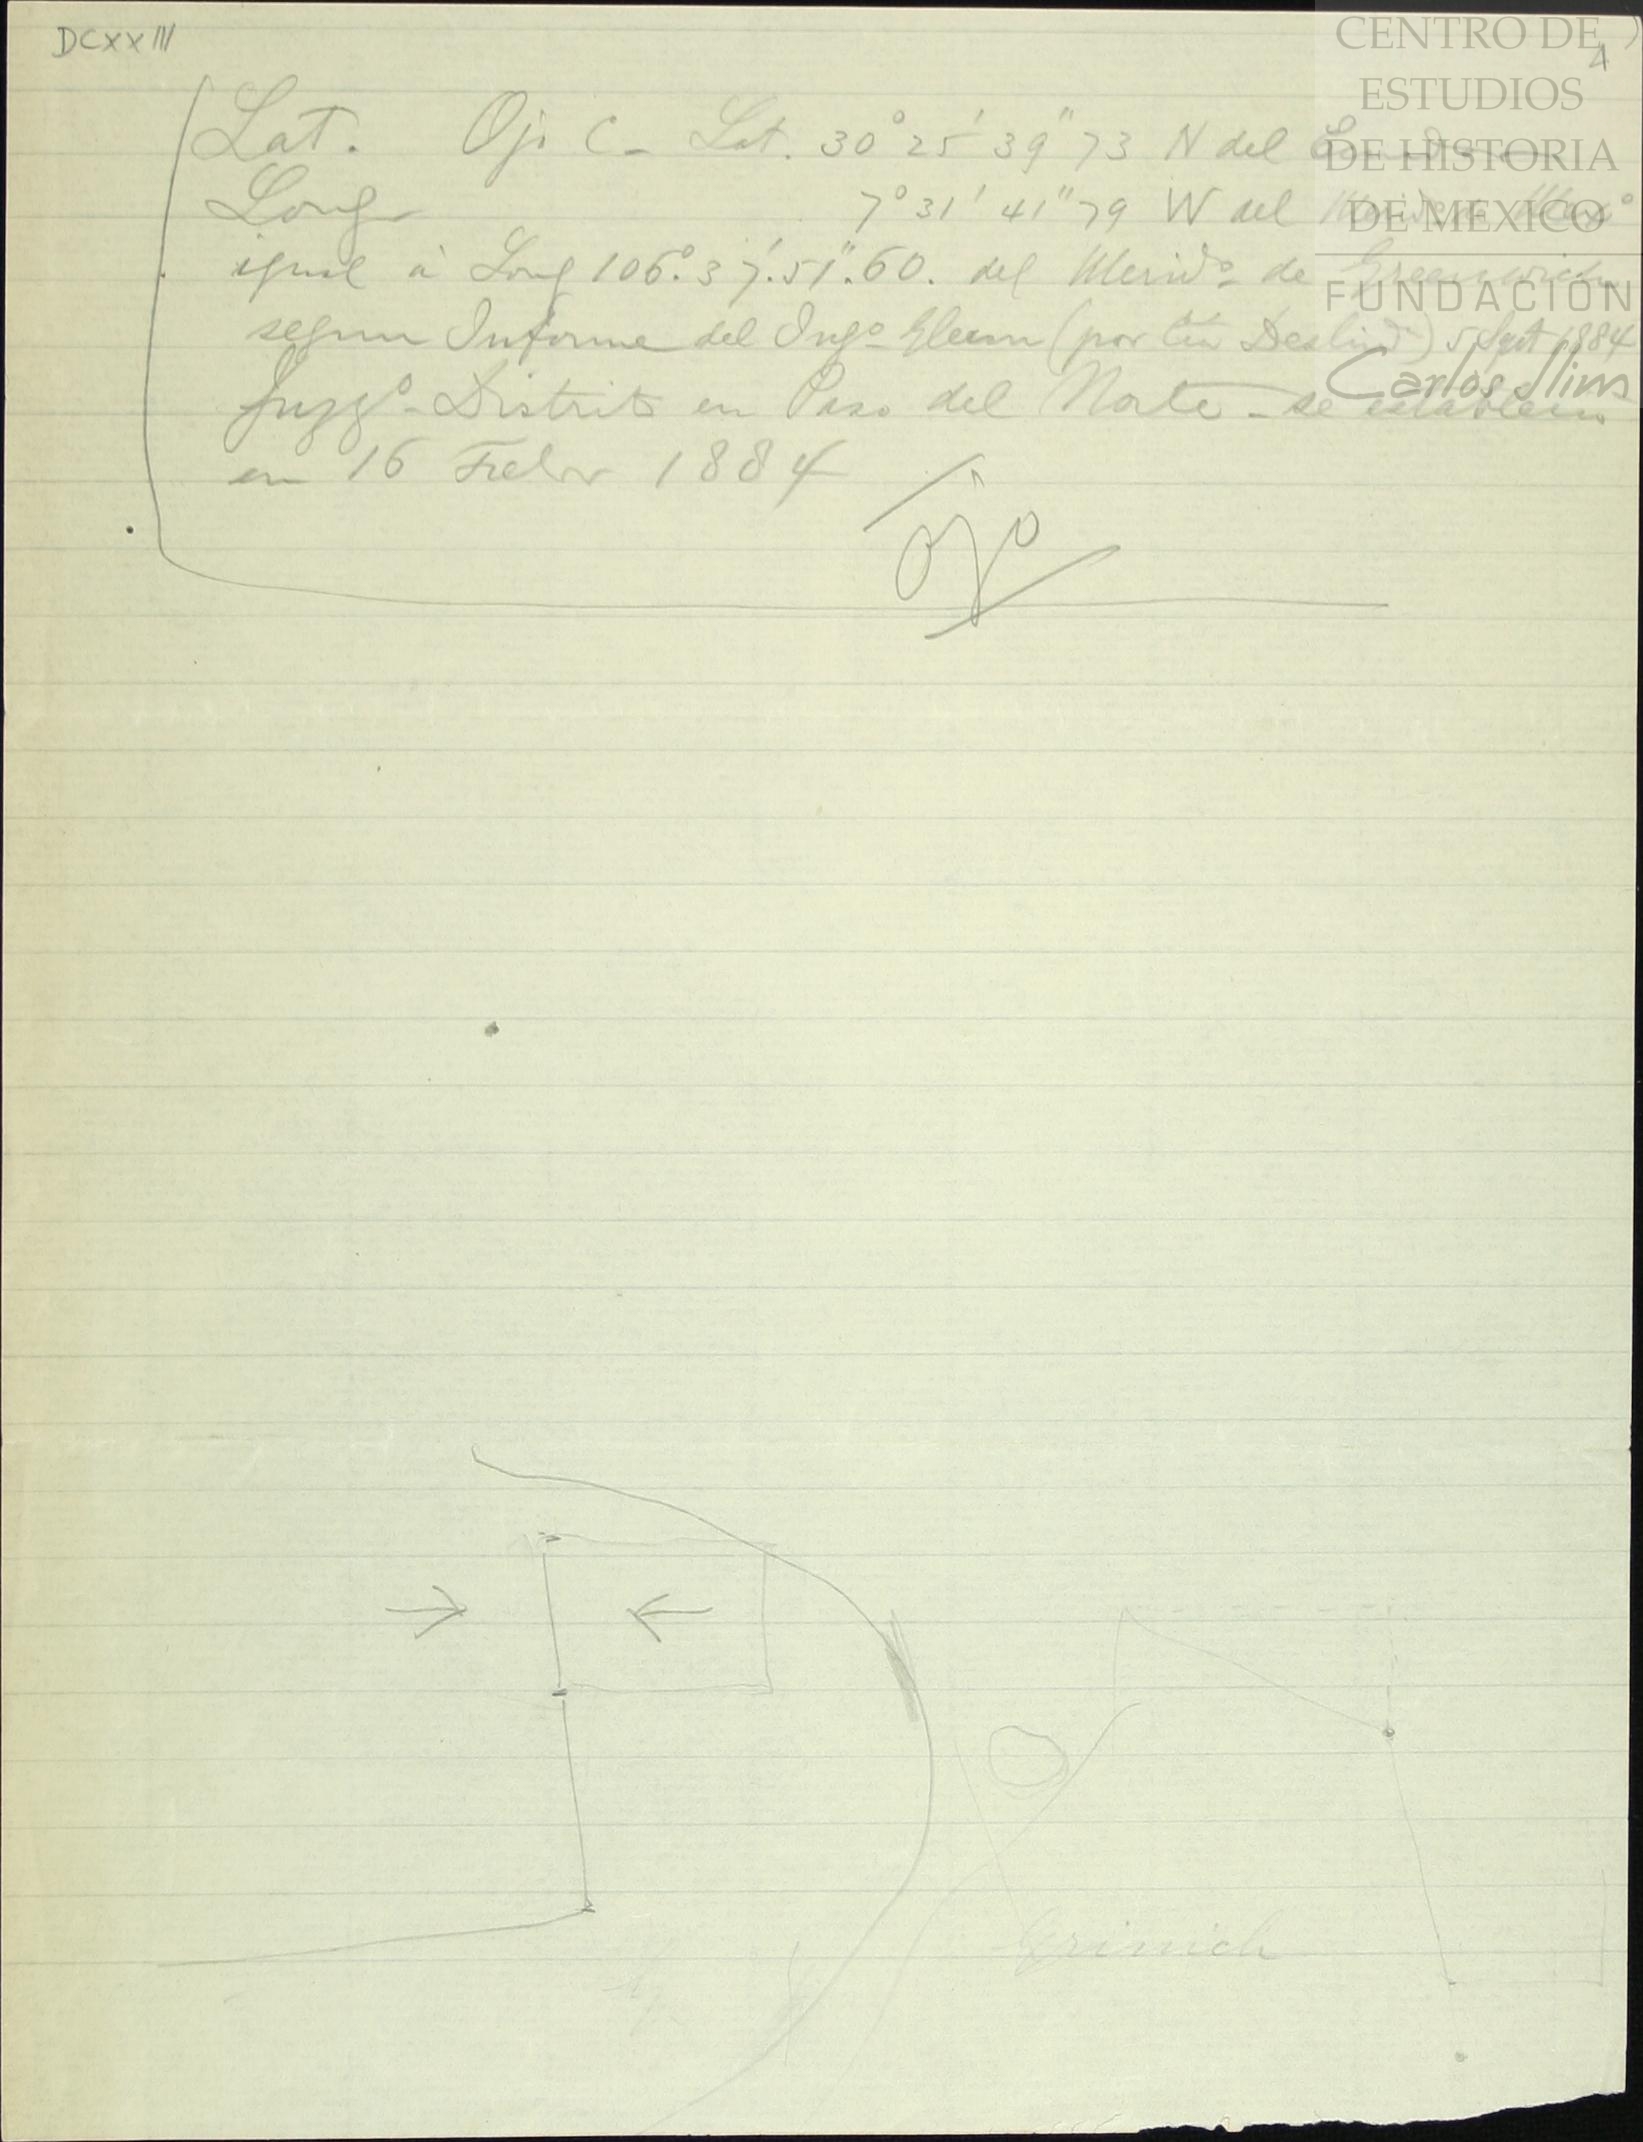 DCXXIII
4
CENTRO DE
ESTUDIOS
DE HISTORIA
DE MEXICO
FUNDACIÓN
Carlos Slim
Lat. Ojo C - Lat. 30° 25' 39" 73 N del
Long 7° 31' 41" 79 W del
igual á Long 106°.37'.51".60. del Merid° de Greenwich
segun Informe del Ing° (por Deslind) 5 Sept 1884
Juzg° Distrito en Paso del Norte - se estableció
en 16 Febr 1884
Ojo
Grinich